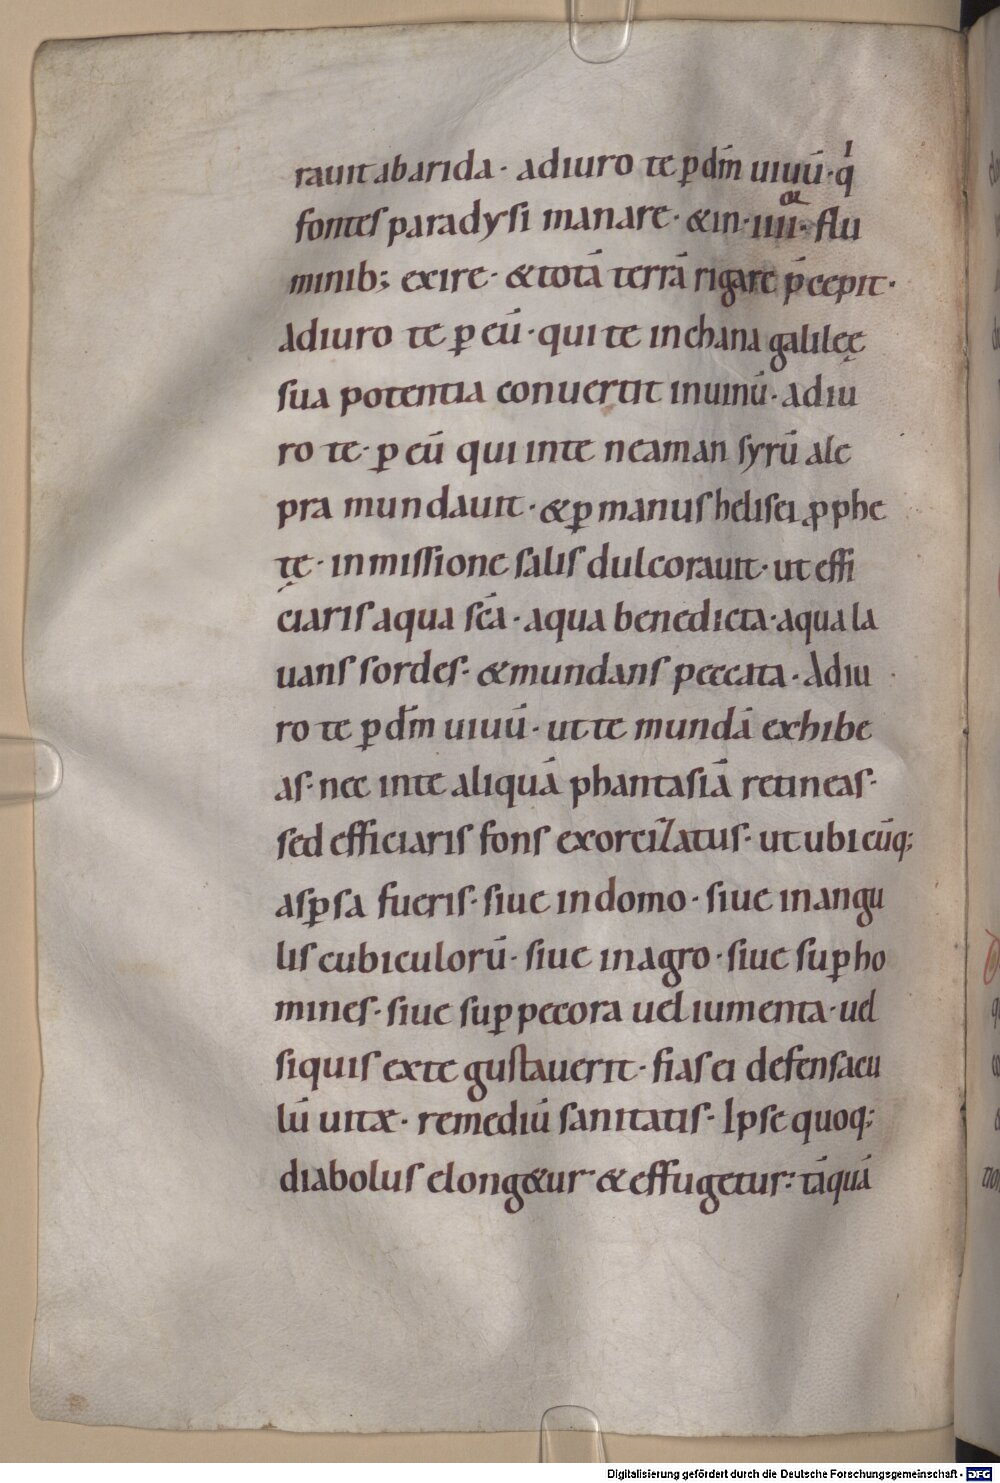 rauit abarida · adiuro te p̱ dm̄ uiuū · qͥ
fontes paradysi manare · & in · iiiiᵒʳ · flu
minib; exire · & totā terrā rigare p̄cepit ·
Adiuro te p̱ eū · qui te in chana galileę
sua potentia conuertit in uinū · Adiu
ro te · p̱ eū qui in te neaman syrū ale
pra mundauit · & p̱ manus helisei ꝓphe
tę · in missione salis dulcorauit · ut effi
ciaris aqua scā · aqua benedicta · aqua la
uans sordes · & mundans peccata · Adiu
ro te p̱ dm̄ uiuū · ut te mundā exhibe
as · nec in te aliquā phantasiā retineas ·
sed efficiaris fons exorcizatus · ut ubicūq;
asp̱sa fueris · siue in domo · siue in angu
lis cubiculorū · siue in agro · siue sup̱ ho
mines · siue sup̱ pecora uel iumenta · uel
siquis ex te gustauerit · fias ei defensacu
lū uitæ · remediū sanitatis · Ipse quoq;
diabolus elong&ur · & effugetur : tāquā
Digitalisierung gefördert durch die Deutsche Forschungsgemeinschaft - DFG